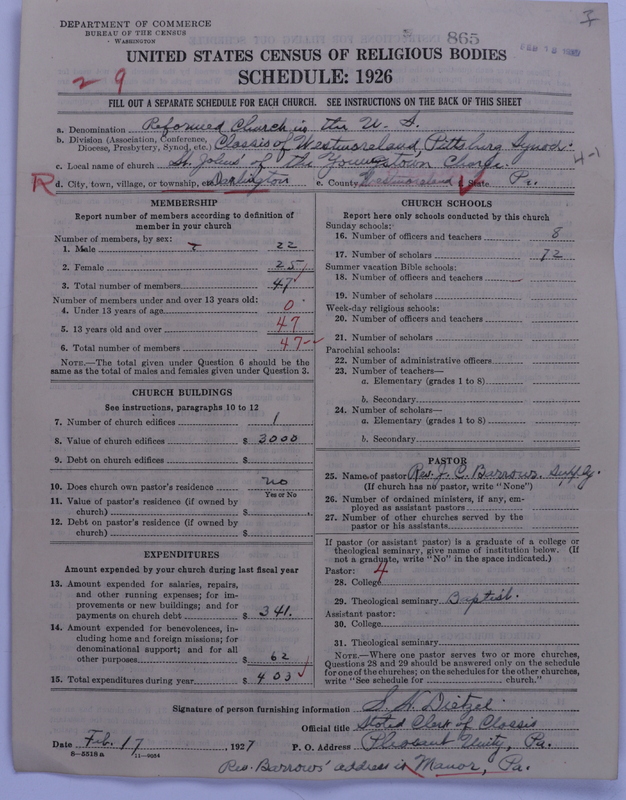 DEPARTMENT OF COMMERCE
BUREAU OF THE CENSUS
WASHINGTON
865
UNITED STATES CENSUS OF RELIGIOUS BODIES
SCHEDULE: 1926
29
FILL OUT A SEPARATE SCHEDULE FOR EACH CHURCH. SEE INSTRUCTIONS ON THE BACK OF THIS SHEET
a. Denomination Reformed Church in the U. S.
b. Division (Association, Conference, Diocese, Presbytery, Synod, etc.) Classis of Westmoreland, Pittsburg Synod.
c. Local name of church St. Johns' of the Youngstown Charge.
4-1
R d. City, town, village, or township, etc. Darlington e. County Westmoreland f. State Pa.
MEMBERSHIP
Report number of members according to definition of
member in your church
Number of members, by sex:
1. Male 22
2. Female 25
3. Total number of members 47
Number of members under and over 13 years old:
4. Under 13 years of age 0
5. 13 years old and over 47
6. Total number of members 47
NOTE.—The total given under Question 6 should be
same as the total of males and females given under Question 3.
CHURCH BUILDINGS
See instructions, paragraphs 10 to 12
7. Number of church edifices 1
8. Value of church edifices $ 3000
9. Debt on church edifices $
10. Does church own pastor's residence? no
Yes or No
11. Value of pastor's residence (if owned by
church) $
12. Debt on pastor's residence (if owned by
church) $
EXPENDITURES
Amount expended by your church during last fiscal year
13. Amount expended for salaries, repairs,
and other running expenses; for im-
provements or new buildings; and for
payments on church debt $ 341.
14. Amount expended for benevolences, in-
cluding home and foreign missions; for
denominational support; and for all
other purposes $ 62
15. Total expenditures during year $ 403
CHURCH SCHOOLS
Report here only schools conducted by this church
Sunday schools:
16. Number of officers and teachers 8
17. Number of scholars 72
Summer vacation Bible schools:
18. Number of officers and teachers
19. Number of scholars
Week-day religious schools:
20. Number of officers and teachers
21. Number of scholars
Parochial schools:
22. Number of administrative officers
23. Number of teachers—
a. Elementary (grades 1 to 8)
b. Secondary
24. Number of scholars—
a. Elementary (grades 1 to 8)
b. Secondary
PASTOR
25. Name of pastor Rev. J. C. Barrows. Supply.
(If church has no pastor, write "None")
26. Number of ordained ministers, if any, em-
ployed as assistant pastors
27. Number of other churches served by the
pastor or his assistants
If pastor (or assistant pastor) is a graduate of a college or
theological seminary, give name of institution below. (If
not a graduate, write "No" in the space indicated.)
Pastor: 4
28. College
29. Theological seminary Baptist.
Assistant pastor:
30. College
31. Theological seminary
NOTE.—Where one pastor serves two or more churches,
Questions 28 and 29 should be answered only on the schedule
for one of the churches; on the schedules for the other churches,
write "See schedule for church."
Signature of person furnishing information S. H. Dietzel
Official title Stated Clerk of Classis
Date Feb. 17, 1927 P. O. Address Pleasant Unity, Pa.
8-5518a 11-9084
Rev. Barrows' address is Manor, Pa.